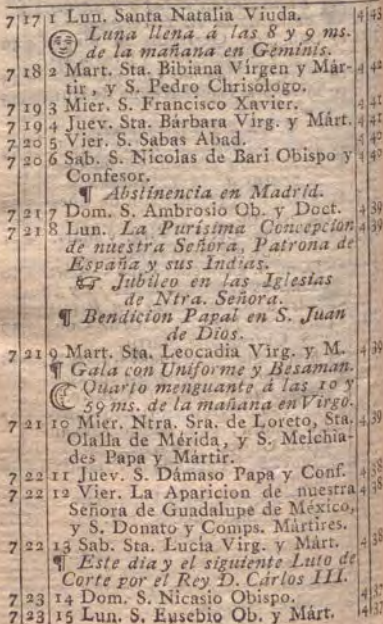 7 17 1 Lun. Santa Natalia Viuda. 4 43
Luna llena á las 8 y 9 ms.
de la mañana en Géminis.
7 18 2 Mart. Sta. Bibiana Vírgen y Már- 4 42
tir, y S. Pedro Chrisologo.
7 19 3 Mier. S. Francisco Xavier. 4 41
7 19 4 Juev. Sta. Bárbara Virg. y Márt. 4 41
7 20 5 Vier. S. Sabas Abad. 4 40
7 20 6 Sab. S. Nicolas de Bari Obispo y 4 40
Confesor.
¶ Abstinencia en Madrid.
7 21 7 Dom. S. Ambrosio Ob. y Doct. 4 39
7 21 8 Lun. La Purísima Concepcion 4 39
de nuestra Señora, Patrona de
España y sus Indias.
☞ Jubiléo en las Iglesias
de Ntra. Señora.
¶ Bendicion Papal en S. Juan
de Dios.
7 21 9 Mart. Sta. Leocadia Virg. y M. 4 39
¶ Gala con Uniforme y Besaman.
Quarto menguante á las 10 y
59 ms. de la mañana en Virgo.
7 21 10 Mier. Ntra. Sra. de Loreto, Sta. 4 39
Olalla de Mérida, y S. Melchia-
des Papa y Mártir.
7 22 11 Juev. S. Dámaso Papa y Conf. 4 38
7 22 12 Vier. La Aparicion de nuestra 4 38
Señora de Guadalupe de México,
y S. Donato y Comps. Mártires.
7 22 13 Sab. Sta. Lucía Virg. y Márt. 4 38
¶ Este dia y el siguiente Luto de
Corte por el Rey D. Cárlos III.
7 23 14 Dom. S. Nicasio Obispo. 4 37
7 23 15 Lun. S. Eusebio Ob. y Márt. 4 37